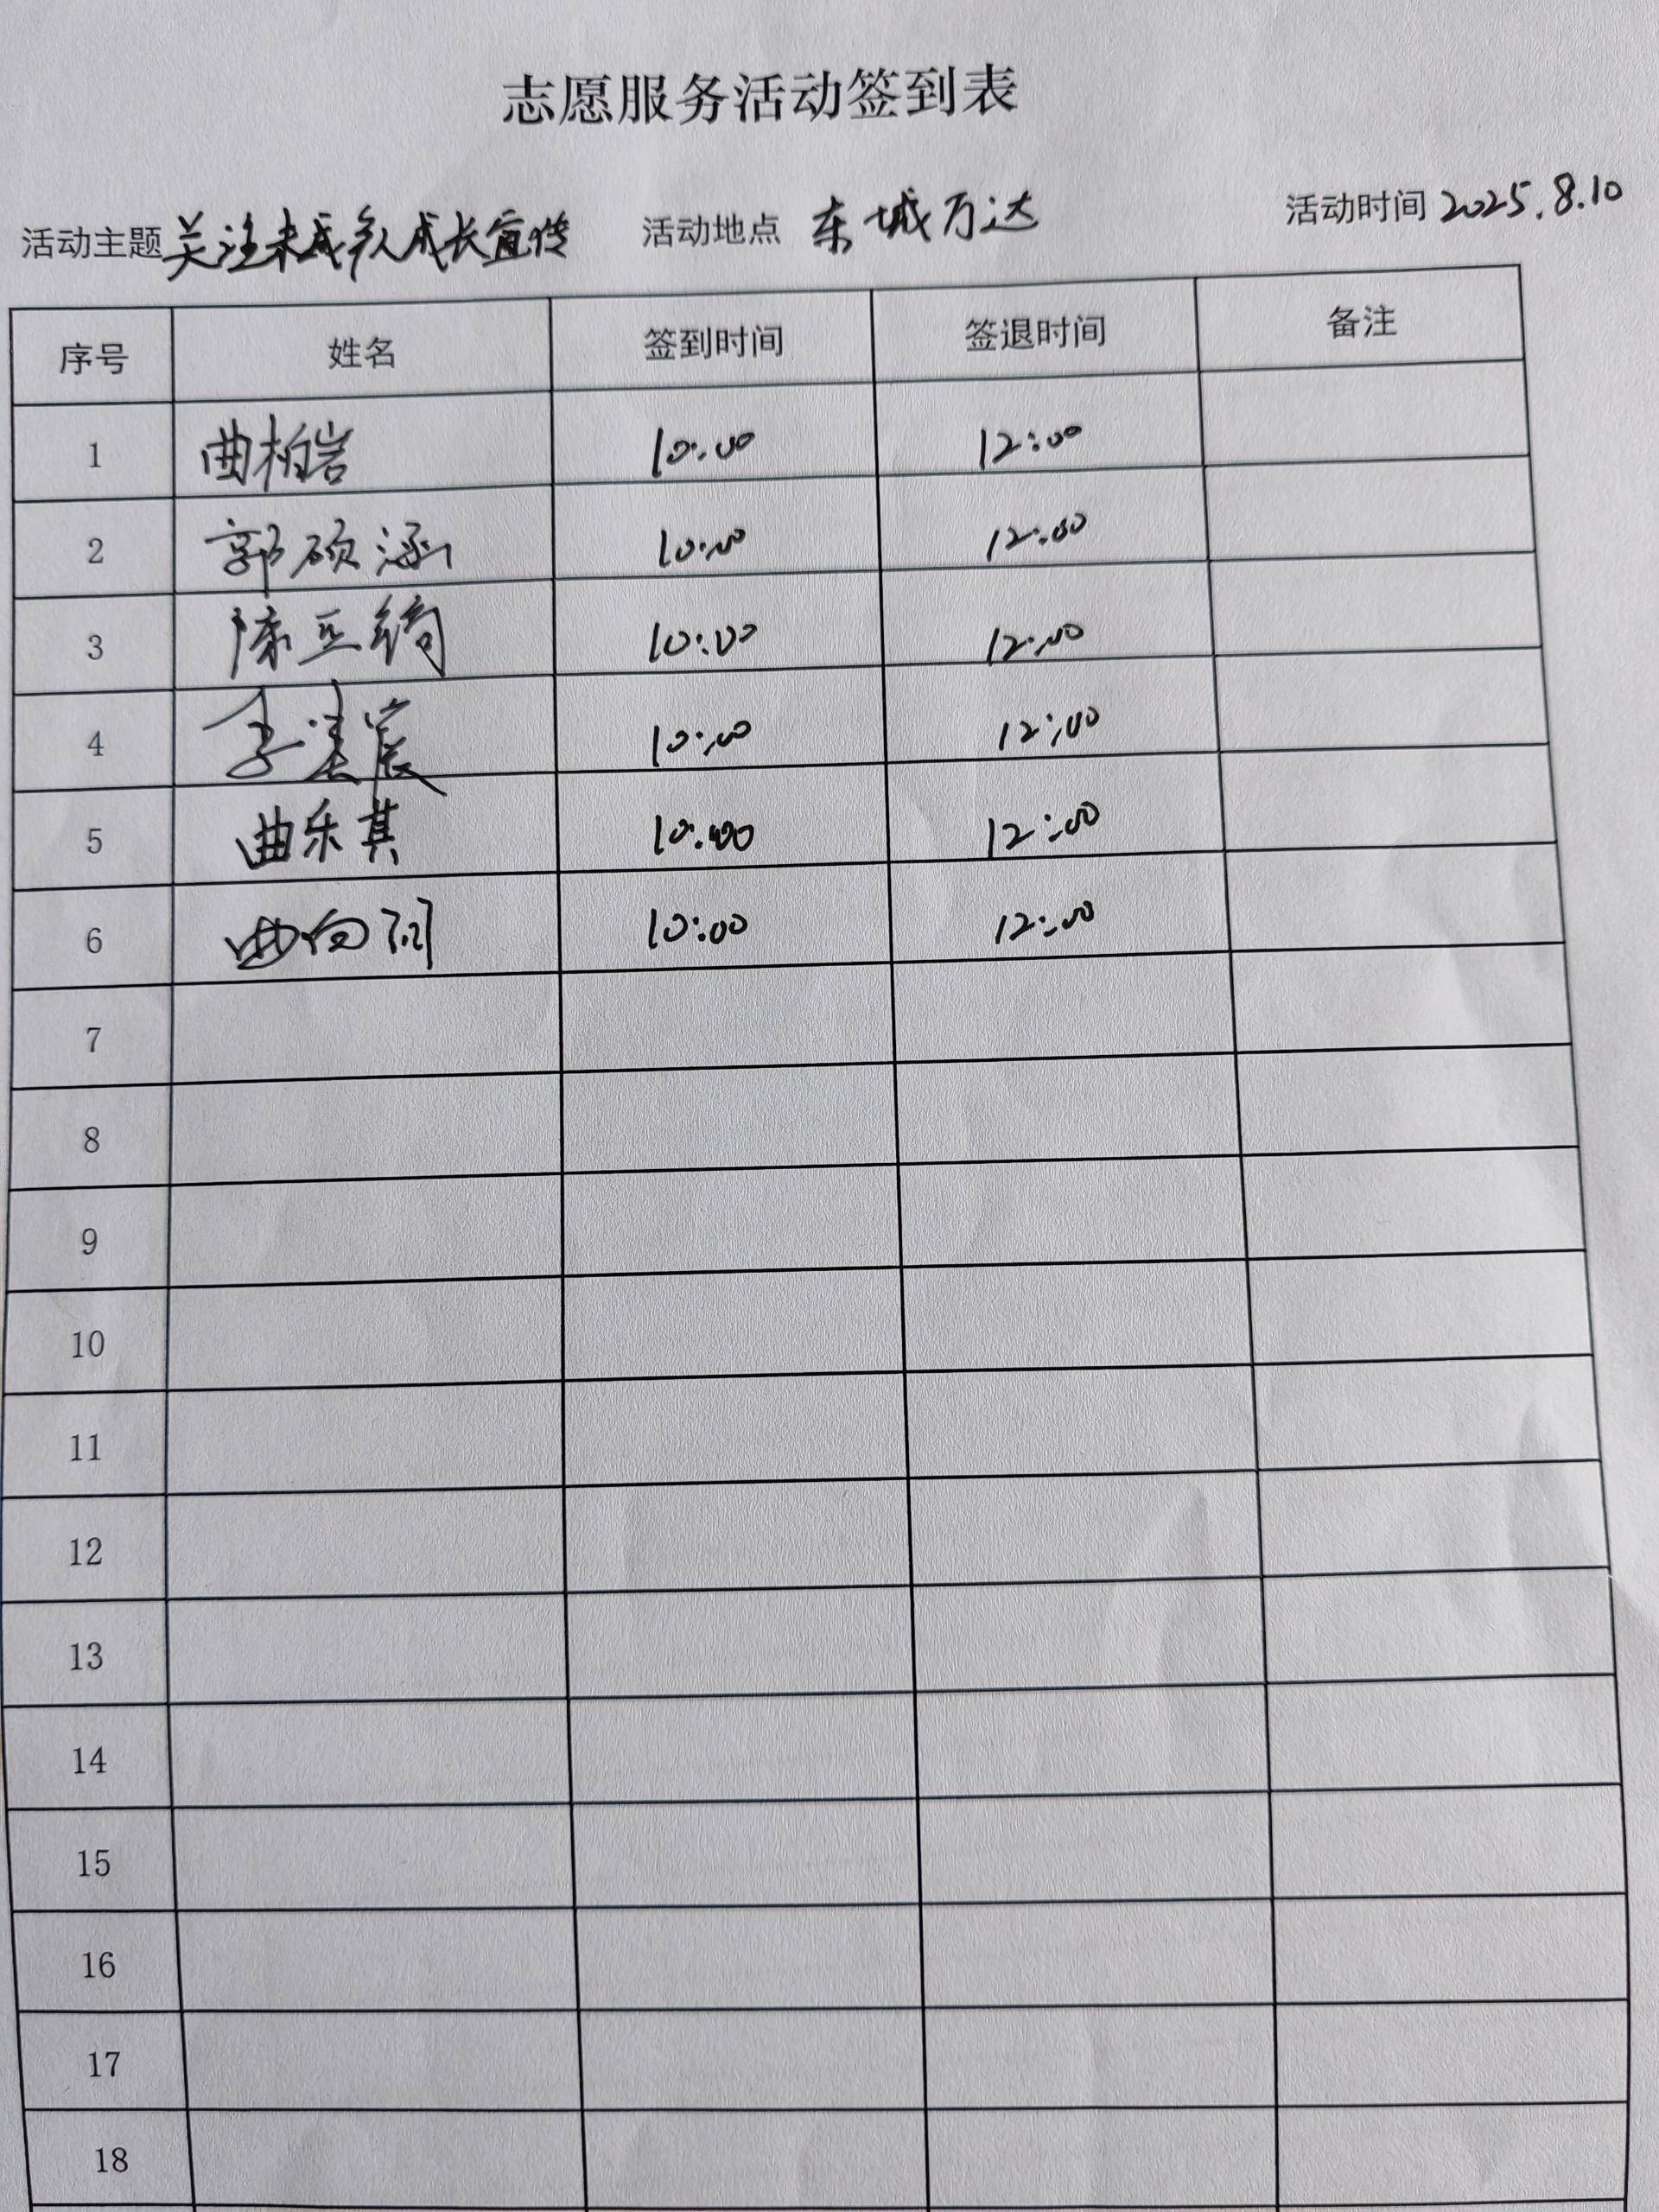 志愿服务活动签到表
活动主题 关注未成年人成长宣传 活动地点 东城万达 活动时间 2025.8.10
序号 姓名 签到时间 签退时间 备注
1 曲柏岩 10:00 12:00
2 郭硕涵 10:00 12:00
3 陈亚绮 10:00 12:00
4 李 宸 10:00 12:00
5 曲乐其 10:00 12:00
6 曲向 10:00 12:00
7
8
9
10
11
12
13
14
15
16
17
18